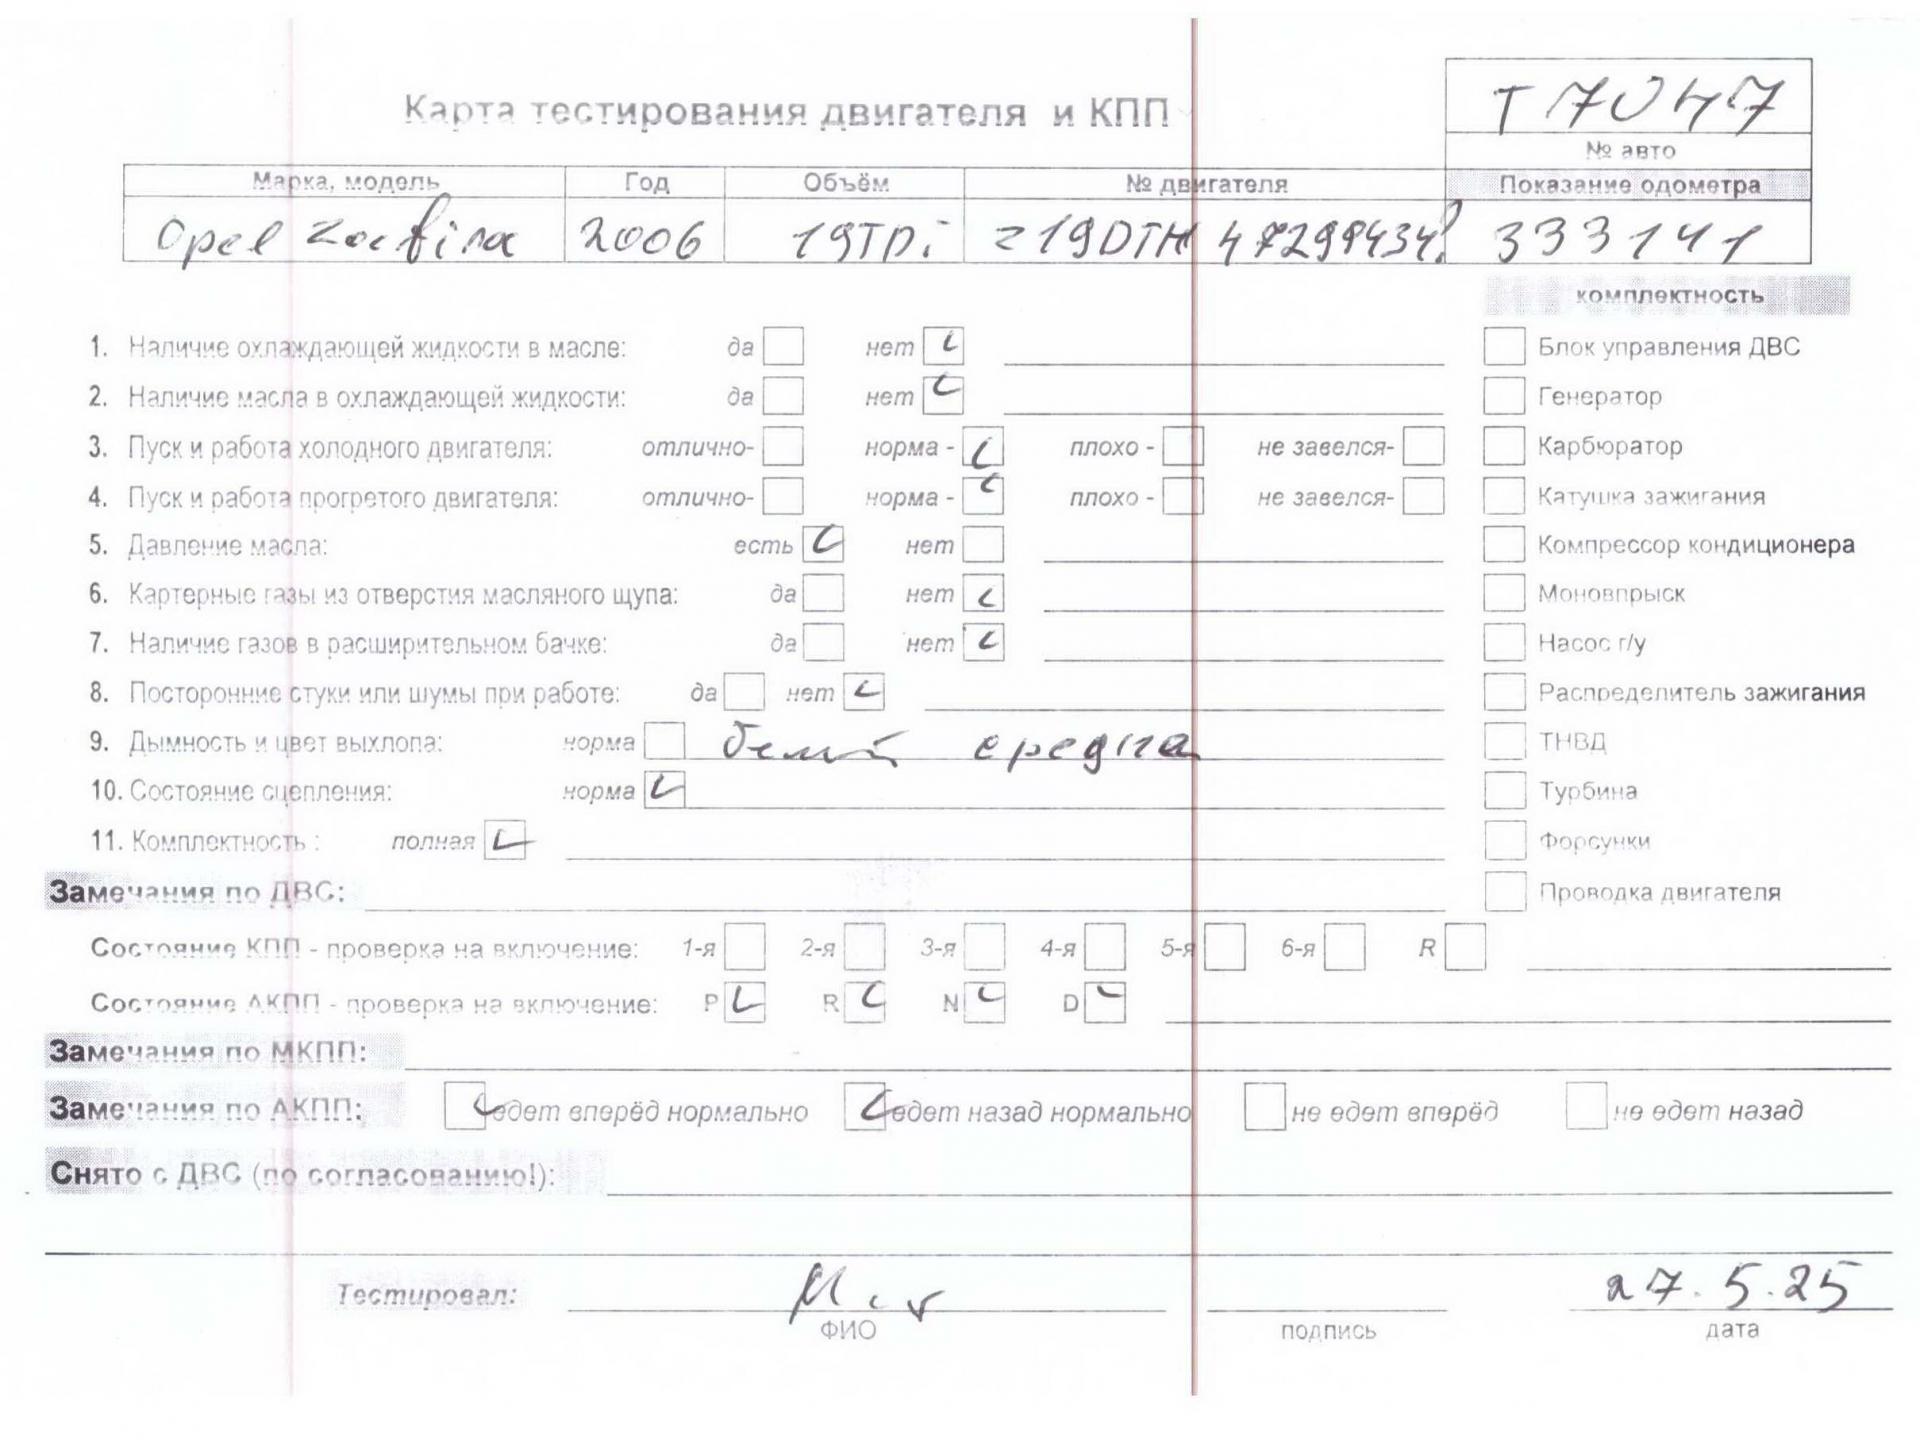 Карта тестирования двигателя и КПП
T7047
№ авто
Марка, модель Год Объём № двигателя Показание одометра
Opel Zafira 2006 19TDi z19DTH 333141
комплектность
1. Наличие охлаждающей жидкости в масле: да нет Блок управления ДВС
2. Наличие масла в охлаждающей жидкости: да нет Генератор
3. Пуск и работа холодного двигателя: отлично- норма - плохо - не завелся- Карбюратор
4. Пуск и работа прогретого двигателя: отлично- норма - плохо - не завелся- Катушка зажигания
5. Давление масла: есть нет Компрессор кондиционера
6. Картерные газы из отверстия масляного щупа: да нет Моновпрыск
7. Наличие газов в расширительном бачке: да нет Насос г/у
8. Посторонние стуки или шумы при работе: да нет Распределитель зажигания
9. Дымность и цвет выхлопа: норма ТНВД
10. Состояние сцепления: норма Турбина
11. Комплектность : полная Форсунки
Замечания по ДВС: Проводка двигателя
Состояние КПП - проверка на включение: 1-я 2-я 3-я 4-я 5-я 6-я R
Состояние АКПП - проверка на включение: P R N D
Замечания по МКПП:
Замечания по АКПП: едет вперёд нормально едет назад нормально не едет вперёд не едет назад
Снято с ДВС (по согласованию!):
Тестировал: 27.5.25
ФИО подпись дата